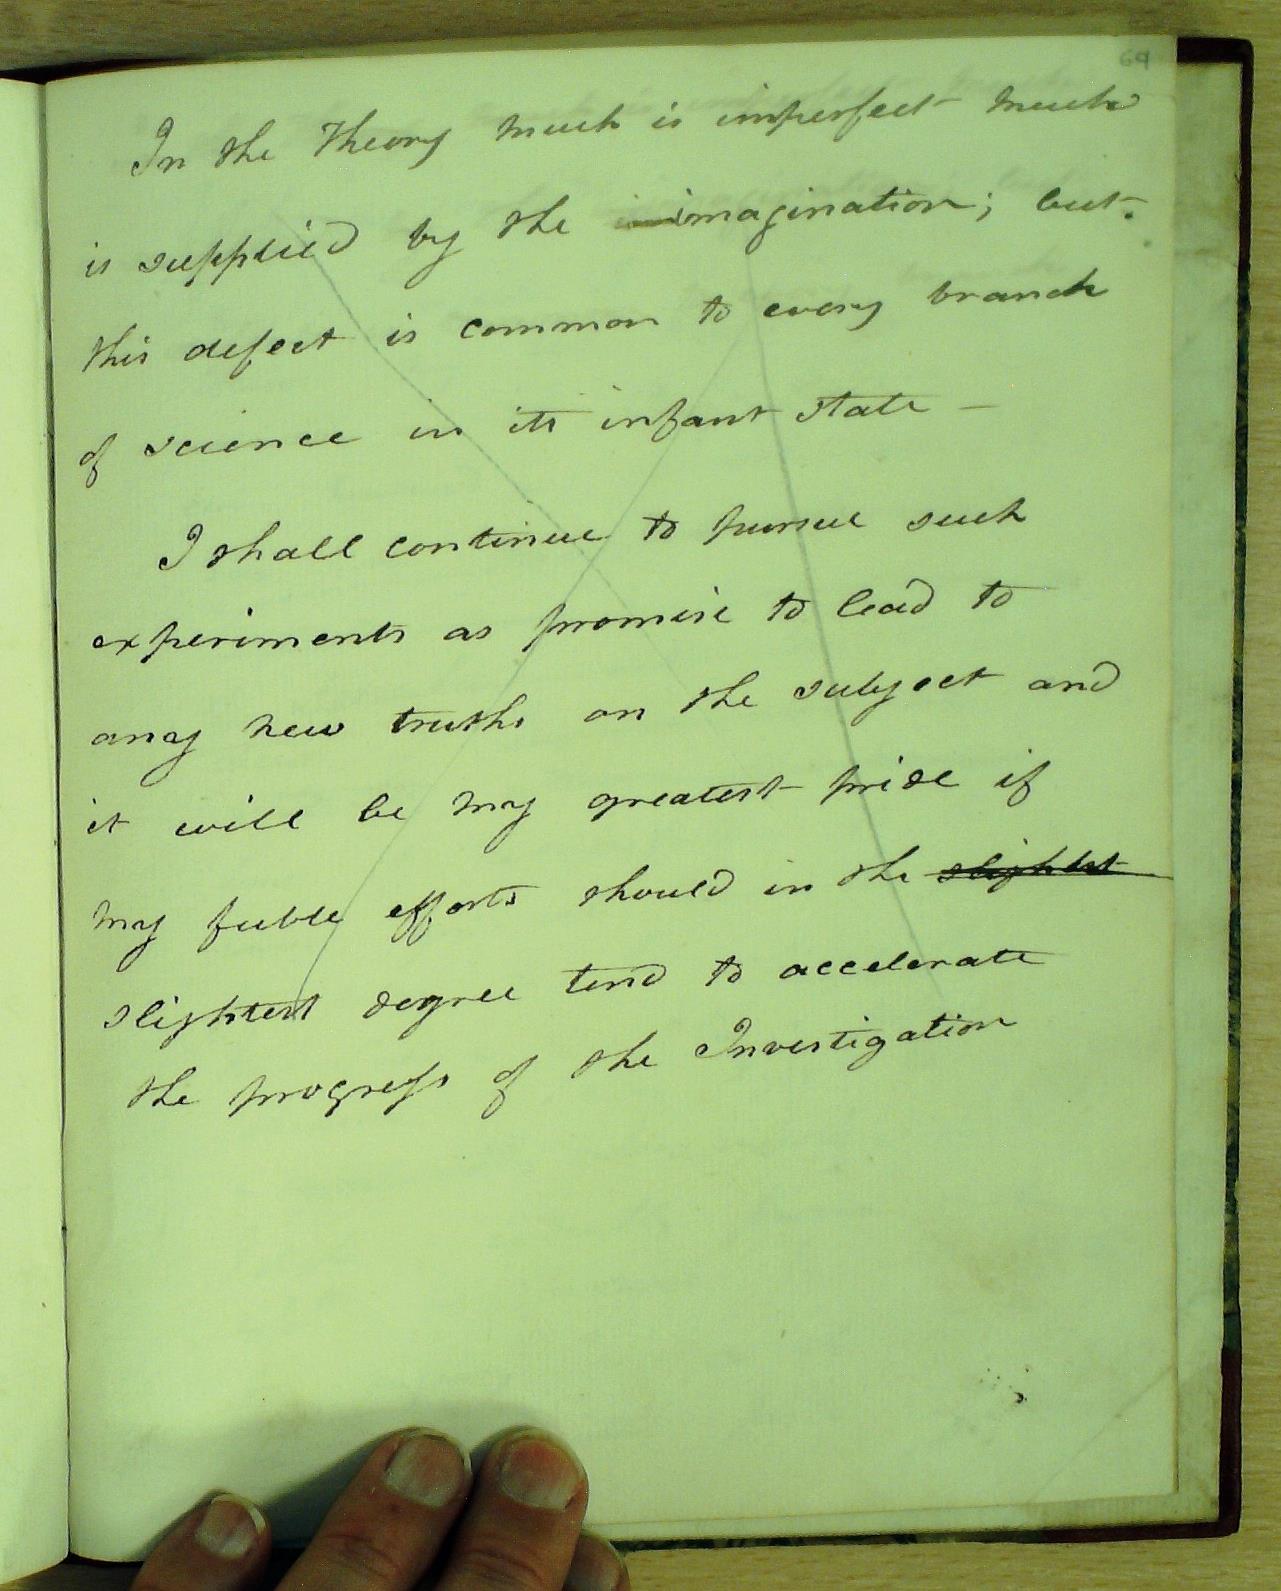 64
In the Theory much is imperfect much
is supplied by the imagination; but.
this defect is common to every branch
of science in its infant state –
I shall continue to pursue such
experiments as promise to lead to
any new truths on the subject and
it will be my greatest pride if
my fuble efforts should in the slightest
slightest degree tend to accelerate
the progress of the Investigation